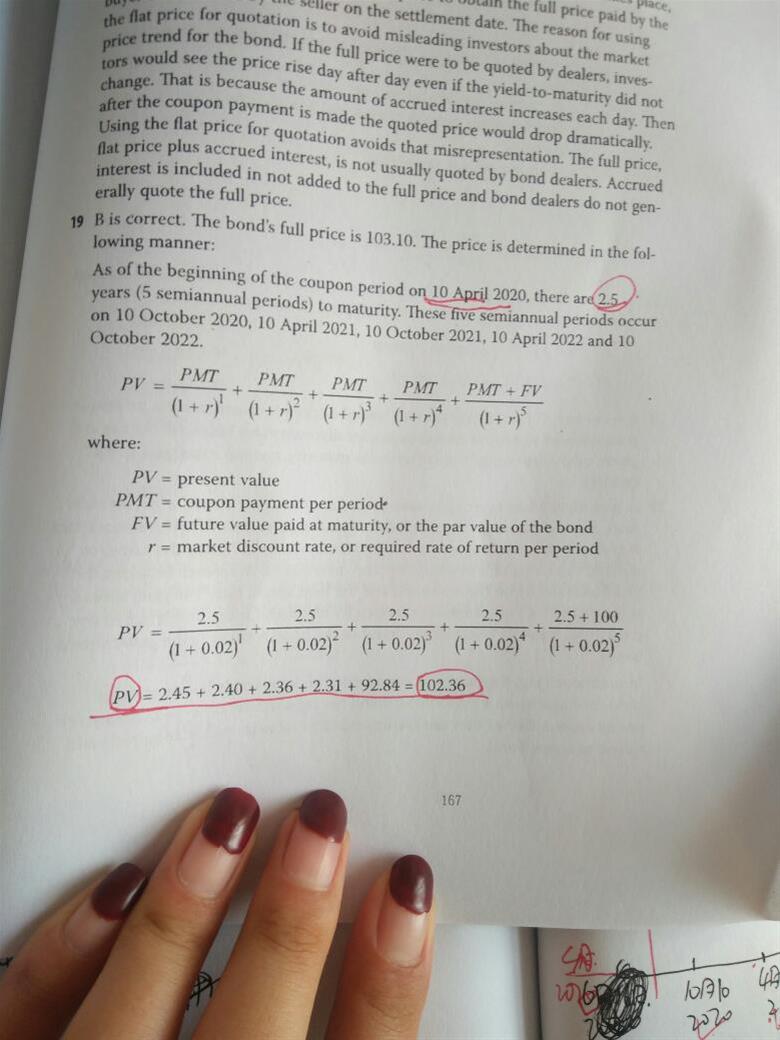 the full price paid by the
seller on the settlement date. The reason for using
the flat price for quotation is to avoid misleading investors about the market
price trend for the bond. If the full price were to be quoted by dealers, inves-
tors would see the price rise day after day even if the yield-to-maturity did not
change. That is because the amount of accrued interest increases each day. Then
after the coupon payment is made the quoted price would drop dramatically.
Using the flat price for quotation avoids that misrepresentation. The full price,
flat price plus accrued interest, is not usually quoted by bond dealers. Accrued
interest is included in not added to the full price and bond dealers do not gen-
erally quote the full price.
19 B is correct. The bond's full price is 103.10. The price is determined in the fol-
lowing manner:
As of the beginning of the coupon period on 10 April 2020, there are 2.5
years (5 semiannual periods) to maturity. These five semiannual periods occur
on 10 October 2020, 10 April 2021, 10 October 2021, 10 April 2022 and 10
October 2022.
PV = PMT/(1 + r)^1 + PMT/(1 + r)^2 + PMT/(1 + r)^3 + PMT/(1 + r)^4 + PMT + FV/(1 + r)^5
where:
PV = present value
PMT = coupon payment per period
FV = future value paid at maturity, or the par value of the bond
r = market discount rate, or required rate of return per period
PV = 2.5/(1 + 0.02)^1 + 2.5/(1 + 0.02)^2 + 2.5/(1 + 0.02)^3 + 2.5/(1 + 0.02)^4 + 2.5 + 100/(1 + 0.02)^5
PV = 2.45 + 2.40 + 2.36 + 2.31 + 92.84 = 102.36
167
10月10
2020